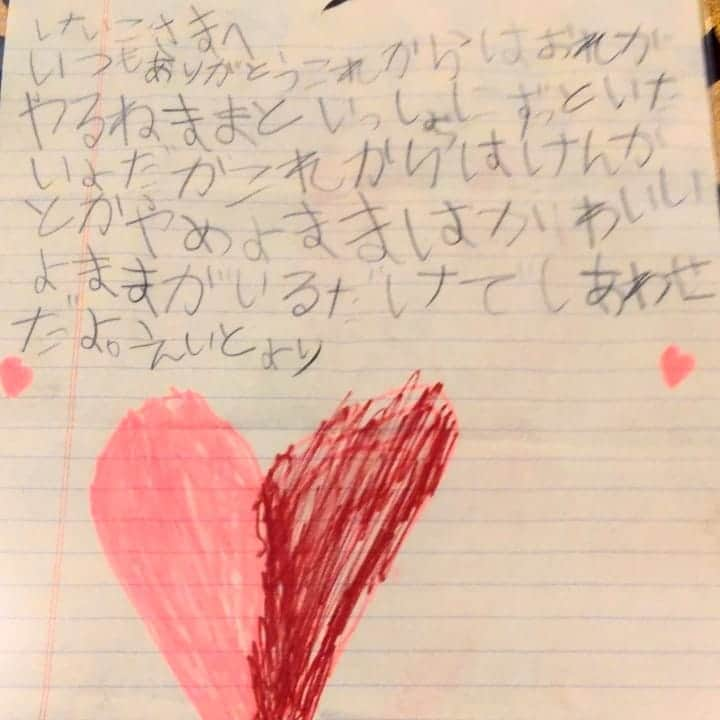 けいこさまへ
いつもありがとうこれからはおれが
やるねままといっしょにずっといた
いよだがこれからはけんか
とかやめよままはかわいい
よままがいるだけでしあわせ
だよ。えいとより